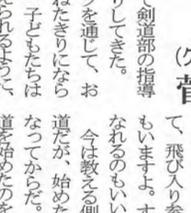 (久
菅
て、飛び入り参
もいますよ。す
なれるのもいい
今は教える側
道だが、始めた
なってからだ。
道を始めたのを
て剣道部の指導
りしてきた。
を通じて、お
ねたきりになら
子どもたちは
えられるよう、